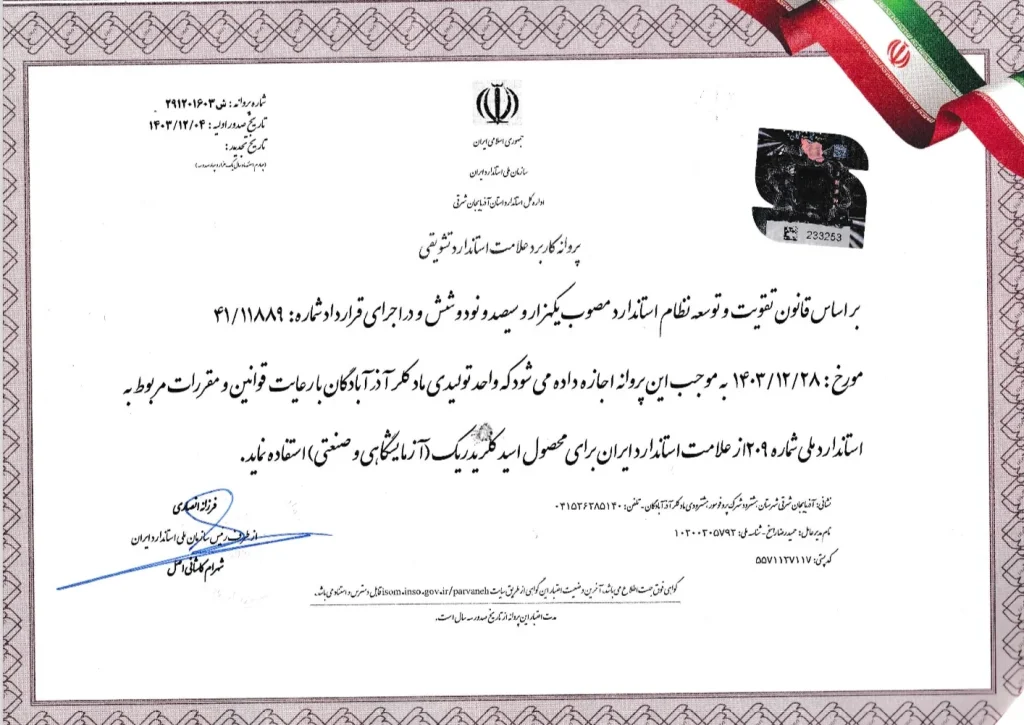 شماره پروانه: ش ۲۹۱۲۰۱۶۰۳
تاریخ صدور اولیه: ۱۴۰۳/۱۲/۰۴
تاریخ تجدید:
جمهوری اسلامی ایران
سازمان ملی استاندارد ایران
اداره کل استاندارد استان آذربایجان شرقی
233253
پروانه کاربرد علامت استاندارد تشویقی
بر اساس قانون تقویت و توسعه نظام استاندارد مصوب یکهزار و سیصد و نود و شش و در اجرای قرارداد شماره: ۴۱/۱۱۸۸۹
مورخ: ۱۴۰۳/۱۲/۲۸ به موجب این پروانه اجازه داده می شود که واحد تولیدی ماد کلر آذرآبادگان با رعایت قوانین و مقررات مربوط به
استاندارد ملی شماره ۲۰۹ از علامت استاندارد ایران برای محصول اسید کلریدریک (آزمایشگاهی و صنعتی) استفاده نماید.
نشانی: آذربایجان شرقی شهرستان هشترود شرک هشترودی ماد کلر آذرآبادگان - تلفن: ۰۴۱۵۲۶۲۸۵۱۴۰
نام مدیرعامل: حمیدرضا - شناسه ملی: ۱۰۲۰۰۲۰۵۷۹۲
کد پستی: ۵۵۷۱۱۲۷۱۱۷
فرزانه انصاری
از طرف رئیس سازمان ملی استاندارد ایران
شهرام کاشانی اصل
گواهی فوق جهت اطلاع می باشد. آخرین وضعیت اعتبار این گواهی از طریق سایت isom.inso.gov.ir/parvaneh قابل دسترس و استناد می باشد.
مدت اعتبار این پروانه از تاریخ صدور سه سال است.